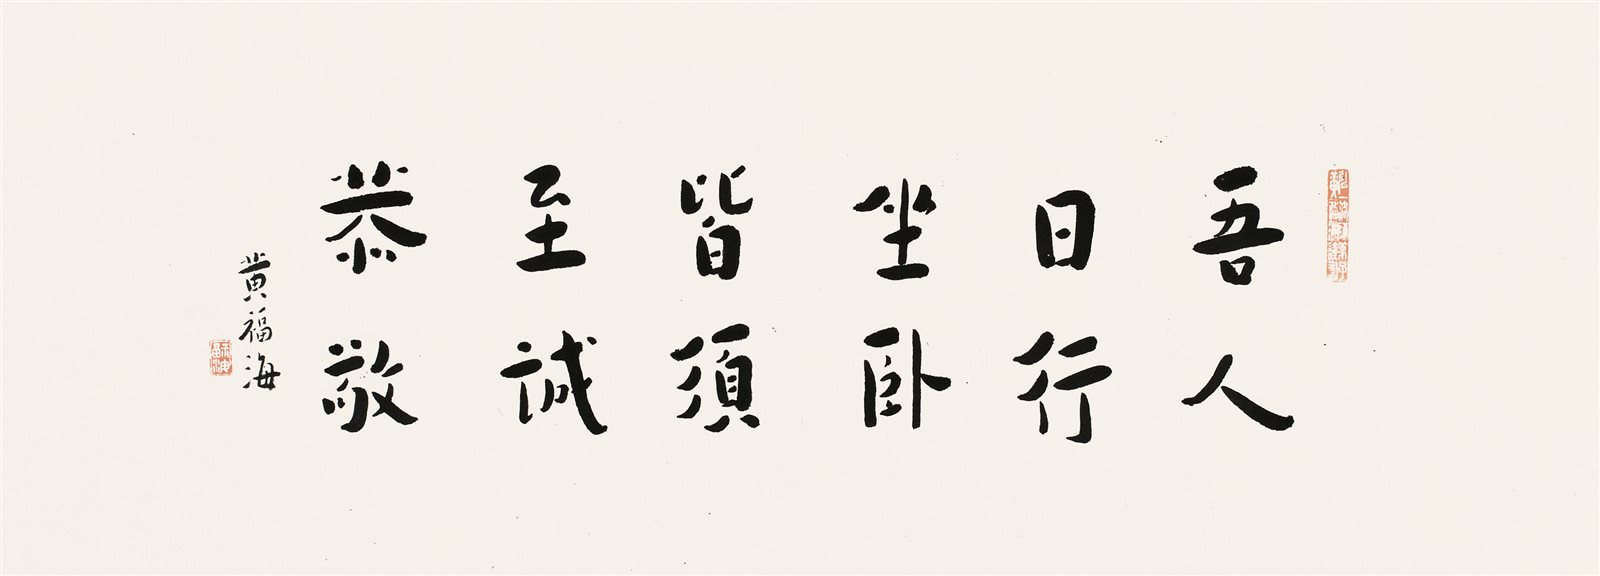 吾人
日行
坐卧
皆須
至誠
恭敬
黄福海